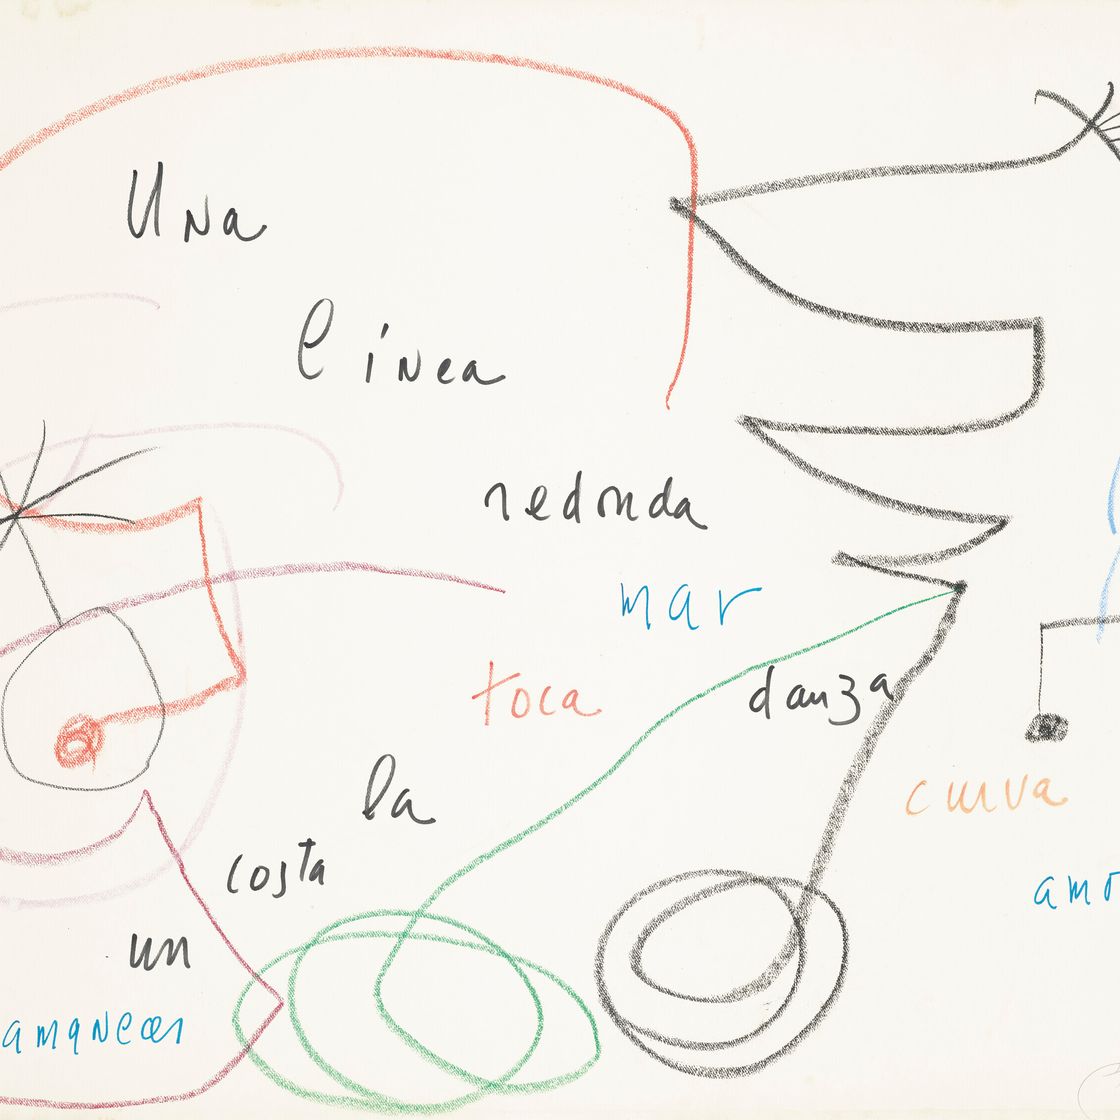 Una
línea
redonda
mar
toca
danza
la
curva
costa
amo
un
amanecer